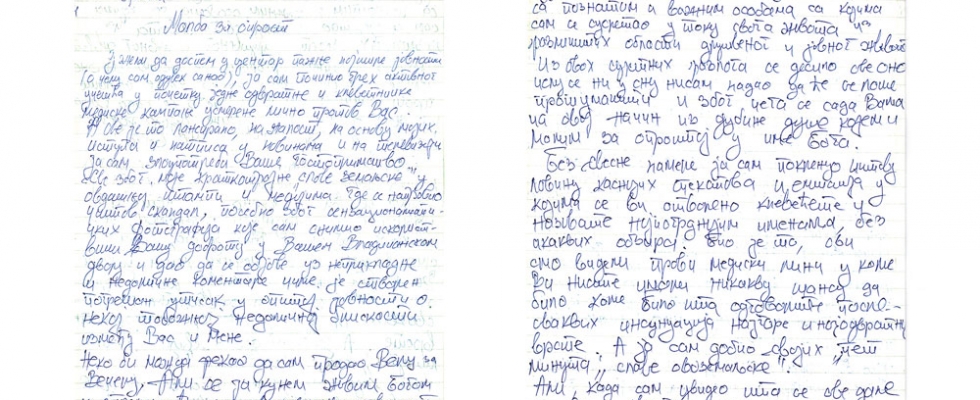 Молба за опрост
У жељи да доспем у центар пажње најшире јавности
(о чему сам одувек сањао), ја сам починио грех активног
учешћа у почетку једне одвратне и клеветничке
медијске кампање усмерене лично против Вас.
А све је то лансирано, на жалост, на основу мојих
иступа и написа у новинама и на телевизији
Ја сам злоупотребио Ваше гостопримство
све због моје краткотрајне славе земаљске у
овдашњој штампи и медијима. Где се направио
читав скандал, посебно због сензационалистич-
ких фотографија које сам снимио искористи-
вши Вашу доброту у Вашем Владичанском
двору и дао да се објаве уз неприкладне
и недоличне коментаре чиме је створен
погрешан утисак у општој јавности о
некој тобожњој недоличној блискости
између Вас и мене.
Неко би можда рекао да сам продао Веру за
Вечеру. Али се ја кунем живим Богом
са познатим и важним особама са којима
сам се сусретао у току свога живота из
различитих области друштвеног и јавног живота
Из ових сујетних разлога се десило све оно
чему се ни у сну нисам надао да ће се после
и због чега се сада Вама
на овај начин из дубине душе кајем и
молим за опроштај у име Бога.
Без свесне намере ја сам покренуо читаву
лавину каснијих текстова и емисија у
којима се Ви отворено клевећете и
називате најпогрднијим именима, без
икаквих обзира. Био је то, сви
смо видели прави медијски линч у коме
Ви нисте имали никакву шансу да
било коме било шта одговорите после
оваквих инсинуација најгоре и најодвратније
врсте. А ја сам добио својих „пет
минута“, славе овоземаљске“.
Али, када сам увидео шта се све даље